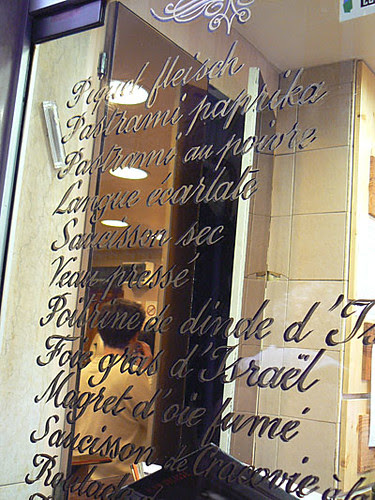 Pique fleisch
Pastrami paprika
Pastrami au poivre
Langue écarlate
Saucisson sec
Veau pressé
Poitrine de dinde d'Is
Foie gras d'Israël
Magret d'oie fumé
Saucisson de Cracovie à la